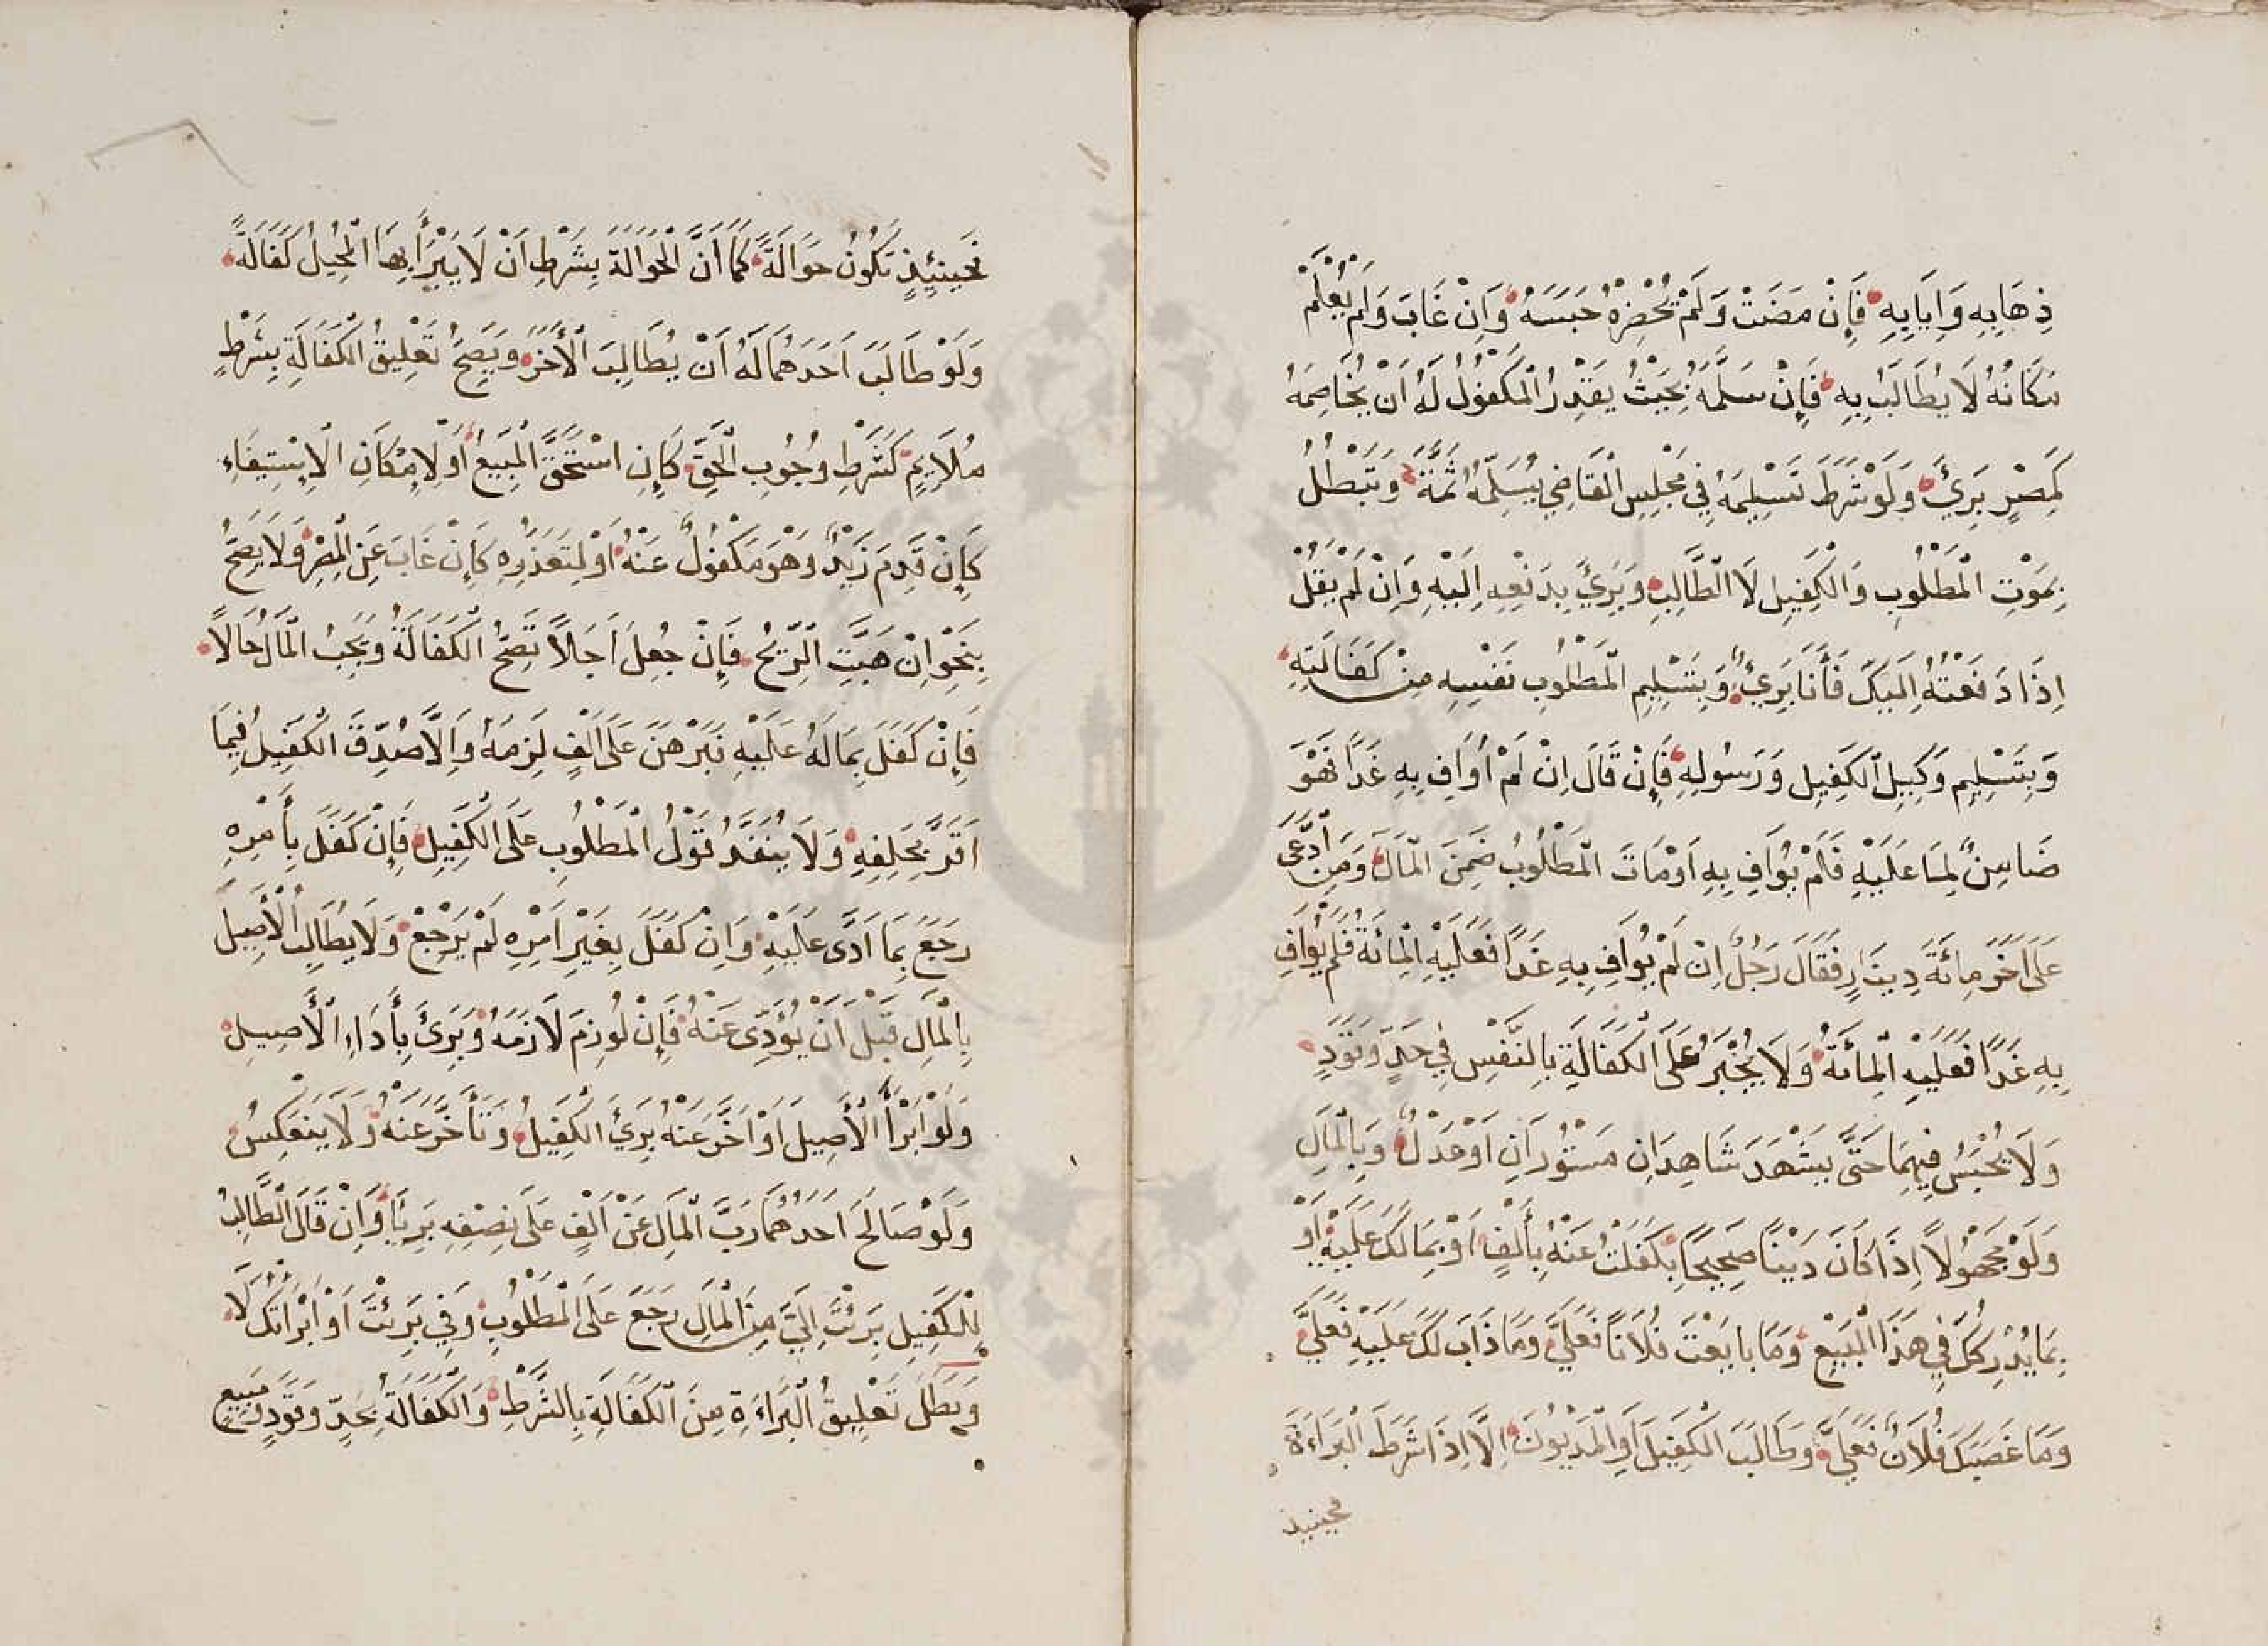 ذِهَابِهِ وَاِيَابِهِ فَاِنْ مَضَتْ وَلَمْ يُحْضِرْهُ حَبَسَهُ وَاِنْ غَابَ وَلَمْ يُعْلَمْ
مَكَانُهُ لَا يُطَالَبُ بِهِ فَاِنْ سَلَّمَهُ بِحَيْثُ يَقْدِرُ الْمَكْفُولُ لَهُ اَنْ يُخَاصِمَهُ
كَمِصْرٍ بَرِئَ وَلَوْ شَرَطَ تَسْلِيمَهُ فِي مَجْلِسِ الْقَاضِي يُسَلِّمُهُ ثَمَّةَ وَتَبْطُلُ
بِمَوْتِ الْمَطْلُوبِ وَالْكَفِيلِ لَا الطَّالِبِ وَبَرِئَ بِدَفْعِهِ اِلَيْهِ وَاِنْ لَمْ يَقُلْ
اِذَا دَفَعْتُهُ اِلَيْكَ فَأَنَا بَرِئٌ وَبِتَسْلِيمِ الْمَطْلُوبِ نَفْسِهِ مِنْ كَفَالَتِهِ
وَبِتَسْلِيمِ وَكِيلِ الْكَفِيلِ وَرَسُولِهِ فَاِنْ قَالَ اِنْ لَمْ اُوَافِ بِهِ غَدًا فَهُوَ
ضَامِنٌ لِمَا عَلَيْهِ فَلَمْ يُوَافِ بِهِ اَوْ مَاتَ الْمَطْلُوبُ ضَمِنَ الْمَالَ وَمَنِ ادَّعَى
عَلَى اٰخَرَ مِائَةَ دِينَارٍ فَقَالَ رَجُلٌ اِنْ لَمْ يُوَافِ بِهِ غَدًا فَعَلَيْهِ الْمِائَةُ فَلَمْ يُوَافِ
بِهِ غَدًا فَعَلَيْهِ الْمِائَةُ وَلَا يُجْبَرُ عَلَى الْكَفَالَةِ بِالنَّفْسِ فِي حَدٍّ وَقَوَدٍ
وَلَا يُحْبَسُ فِيهِمَا حَتَّى يَشْهَدَ شَاهِدَانِ مَسْتُورَانِ اَوْ عَدْلٌ وَبِالْمَالِ
وَلَوْ مَجْهُولًا اِذَا كَانَ دَيْنًا صَحِيحًا بِكَفَلْتُ عَنْهُ بِأَلْفٍ اَوْ بِمَا لَكَ عَلَيْهِ اَوْ
بِمَا يُدْرِكُكَ فِي هَذَا الْبَيْعِ وَمَا بَايَعْتَ فُلَانًا فَعَلَيَّ وَمَا ذَابَ لَكَ عَلَيْهِ فَعَلَيَّ
وَمَا غَصَبَكَ فُلَانٌ فَعَلَيَّ وَطَالَبَ الْكَفِيلَ اَوِ الْمَدْيُونَ اِلَّا اِذَا شَرَطَ الْبَرَاءَةَ
فحينئذ
فَحِينَئِذٍ تَكُونُ حَوَالَةً كَمَا اَنَّ الْحَوَالَةَ بِشَرْطِ اَنْ لَا يَبْرَأَ بِهَا الْمُحِيلُ كَفَالَةٌ
وَلَوْ طَالَبَ اَحَدَهُمَا لَهُ اَنْ يُطَالِبَ الْاٰخَرَ وَيَصِحُّ تَعْلِيقُ الْكَفَالَةِ بِشَرْطٍ
مُلَايِمٍ كَشَرْطِ وُجُوبِ الْحَقِّ كَاِنِ اسْتُحِقَّ الْمَبِيعُ اَوْ لِاِمْكَانِ الْاِسْتِيفَاءِ
كَاِنْ قَدِمَ زَيْدٌ وَهُوَ مَكْفُولٌ عَنْهُ اَوْ لِتَعَذُّرِهِ كَاِنْ غَابَ عَنِ الْمِصْرِ وَلَا يَصِحُّ
بِنَحْوِ اِنْ هَبَّتِ الرِّيحُ فَاِنْ جُعِلَ اَجَلًا تَصِحُّ الْكَفَالَةُ وَيَجِبُ الْمَالُ حَالًا
فَاِنْ كَفَلَ بِمَا لَهُ عَلَيْهِ فَبَرْهَنَ عَلَى اَلْفٍ لَزِمَهُ وَاِلَّا صُدِّقَ الْكَفِيلُ فِيمَا
اَقَرَّ بِحَلِفِهِ وَلَا يُنَفَّذُ قَوْلُ الْمَطْلُوبِ عَلَى الْكَفِيلِ فَاِنْ كَفَلَ بِأَمْرِهِ
رَجَعَ بِمَا اَدَّى عَلَيْهِ وَاِنْ كَفَلَ بِغَيْرِ اَمْرِهِ لَمْ يَرْجِعْ وَلَا يُطَالِبُ الْأَصِيلَ
بِالْمَالِ قَبْلَ اَنْ يُؤَدِّيَ عَنْهُ فَاِنْ لُوزِمَ لَازَمَهُ وَبَرِئَ بِأَدَاءِ الْأَصِيلِ
وَلَوْ اَبْرَأَ الْأَصِيلَ اَوْ اَخَّرَ عَنْهُ بَرِئَ الْكَفِيلُ وَتَأَخَّرَ عَنْهُ وَلَا يَنْعَكِسُ
وَلَوْ صَالَحَ اَحَدُهُمَا رَبَّ الْمَالِ عَنْ اَلْفٍ عَلَى نِصْفِهِ بَرِيَا وَاِنْ قَالَ الطَّالِبُ
لِلْكَفِيلِ بَرِئْتَ اِلَيَّ مِنَ الْمَالِ رَجَعَ عَلَى الْمَطْلُوبِ وَفِي بَرِئْتَ اَوْ اَبْرَأْتُكَ لَا
وَبَطَلَ تَعْلِيقُ الْبَرَاءَةِ مِنَ الْكَفَالَةِ بِالشَّرْطِ وَالْكَفَالَةُ بِحَدٍّ وَقَوَدٍ وَمَبِيعٍ